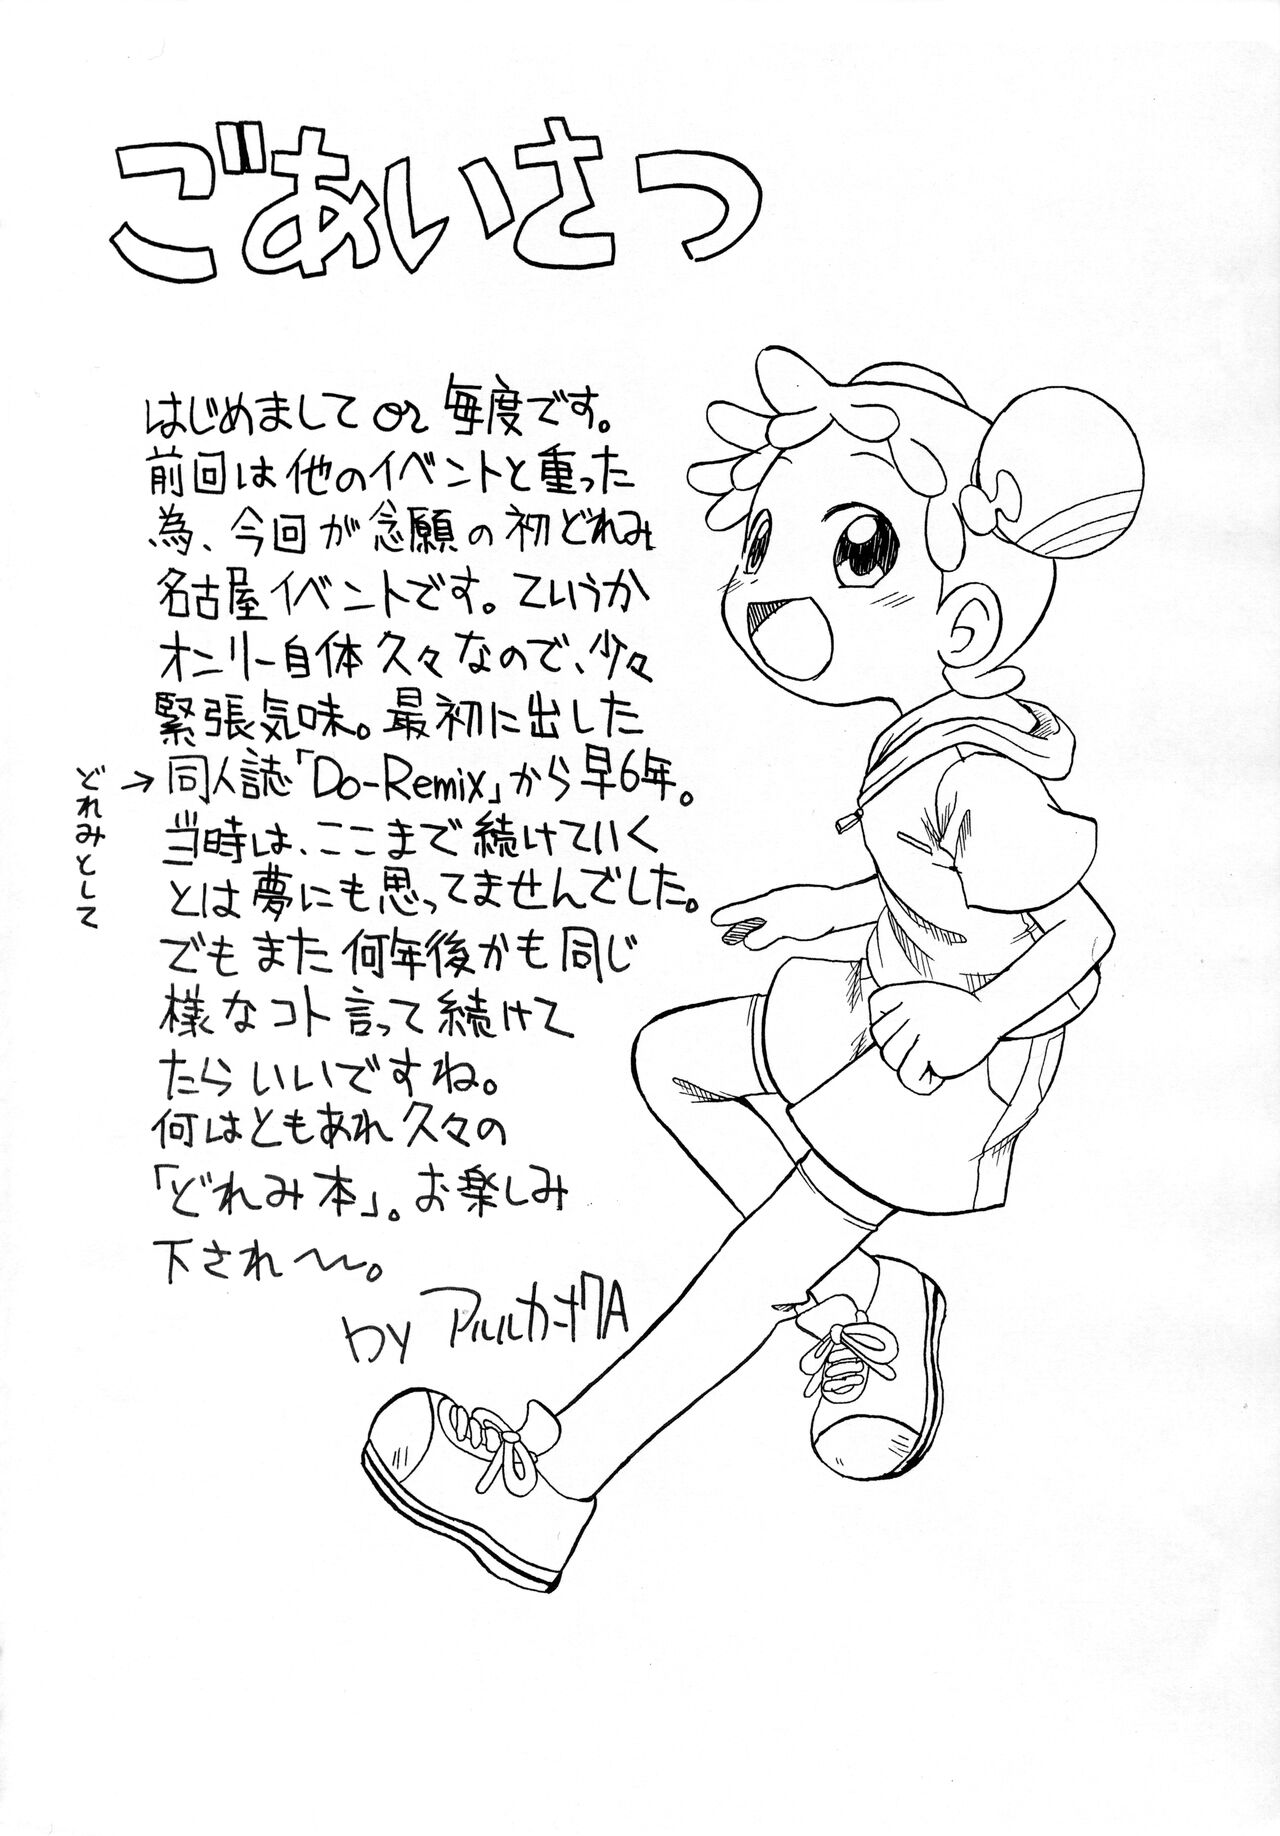 ごあいさつ
はじめまして or 毎度です。
前回は他のイベントと重った
為、今回が念願の初どれみ
名古屋イベントです。ていうか
オンリー自体久々なので、少々
緊張気味。最初に出した
どれみとして→同人誌「Do-Remix」から早6年。
当時は、ここまで続けていく
とは夢にも思ってませんでした。
でもまた何年後かも同じ
様なコト言って続けて
たらいいですね。
何はともあれ久々の
「どれみ本」。お楽しみ
下され〜〜。
by